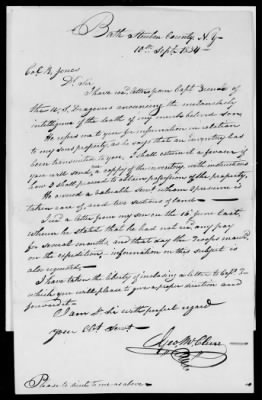 Bath Steuben County N.Y.
10th Sept. 1834
Col. R. Jones
Dr. Sir
I have recd. letters from Capt Duncan of
the U.S. Dragoons announcing the melancholy
intelligence of the death of my much beloved son.
He refers me to you for information in relation
to my sons property, as he says that an inventory has
been transmitted to you, I shall esteem it a favour if
you will send a copy of the inventory, with instructions
how I shall proceed to obtain possession of the property,
He owned a valuable servt. whom I presume is
taken care of, and two sections of land
I recd. a letter from my son on the 16th June last,
wherein he states that he had not recd. any pay
for several months, and that day the Troops marchd.
on the expedition, information on this subject is
also requested.
I have taken the liberty of inclosing a letter to Capt. D.
which you will please to give a proper direction and
forward it.
I am Dr. Sir with perfect regard
your Obt. Servt.
Geo. McClure
Please to direct to me as above